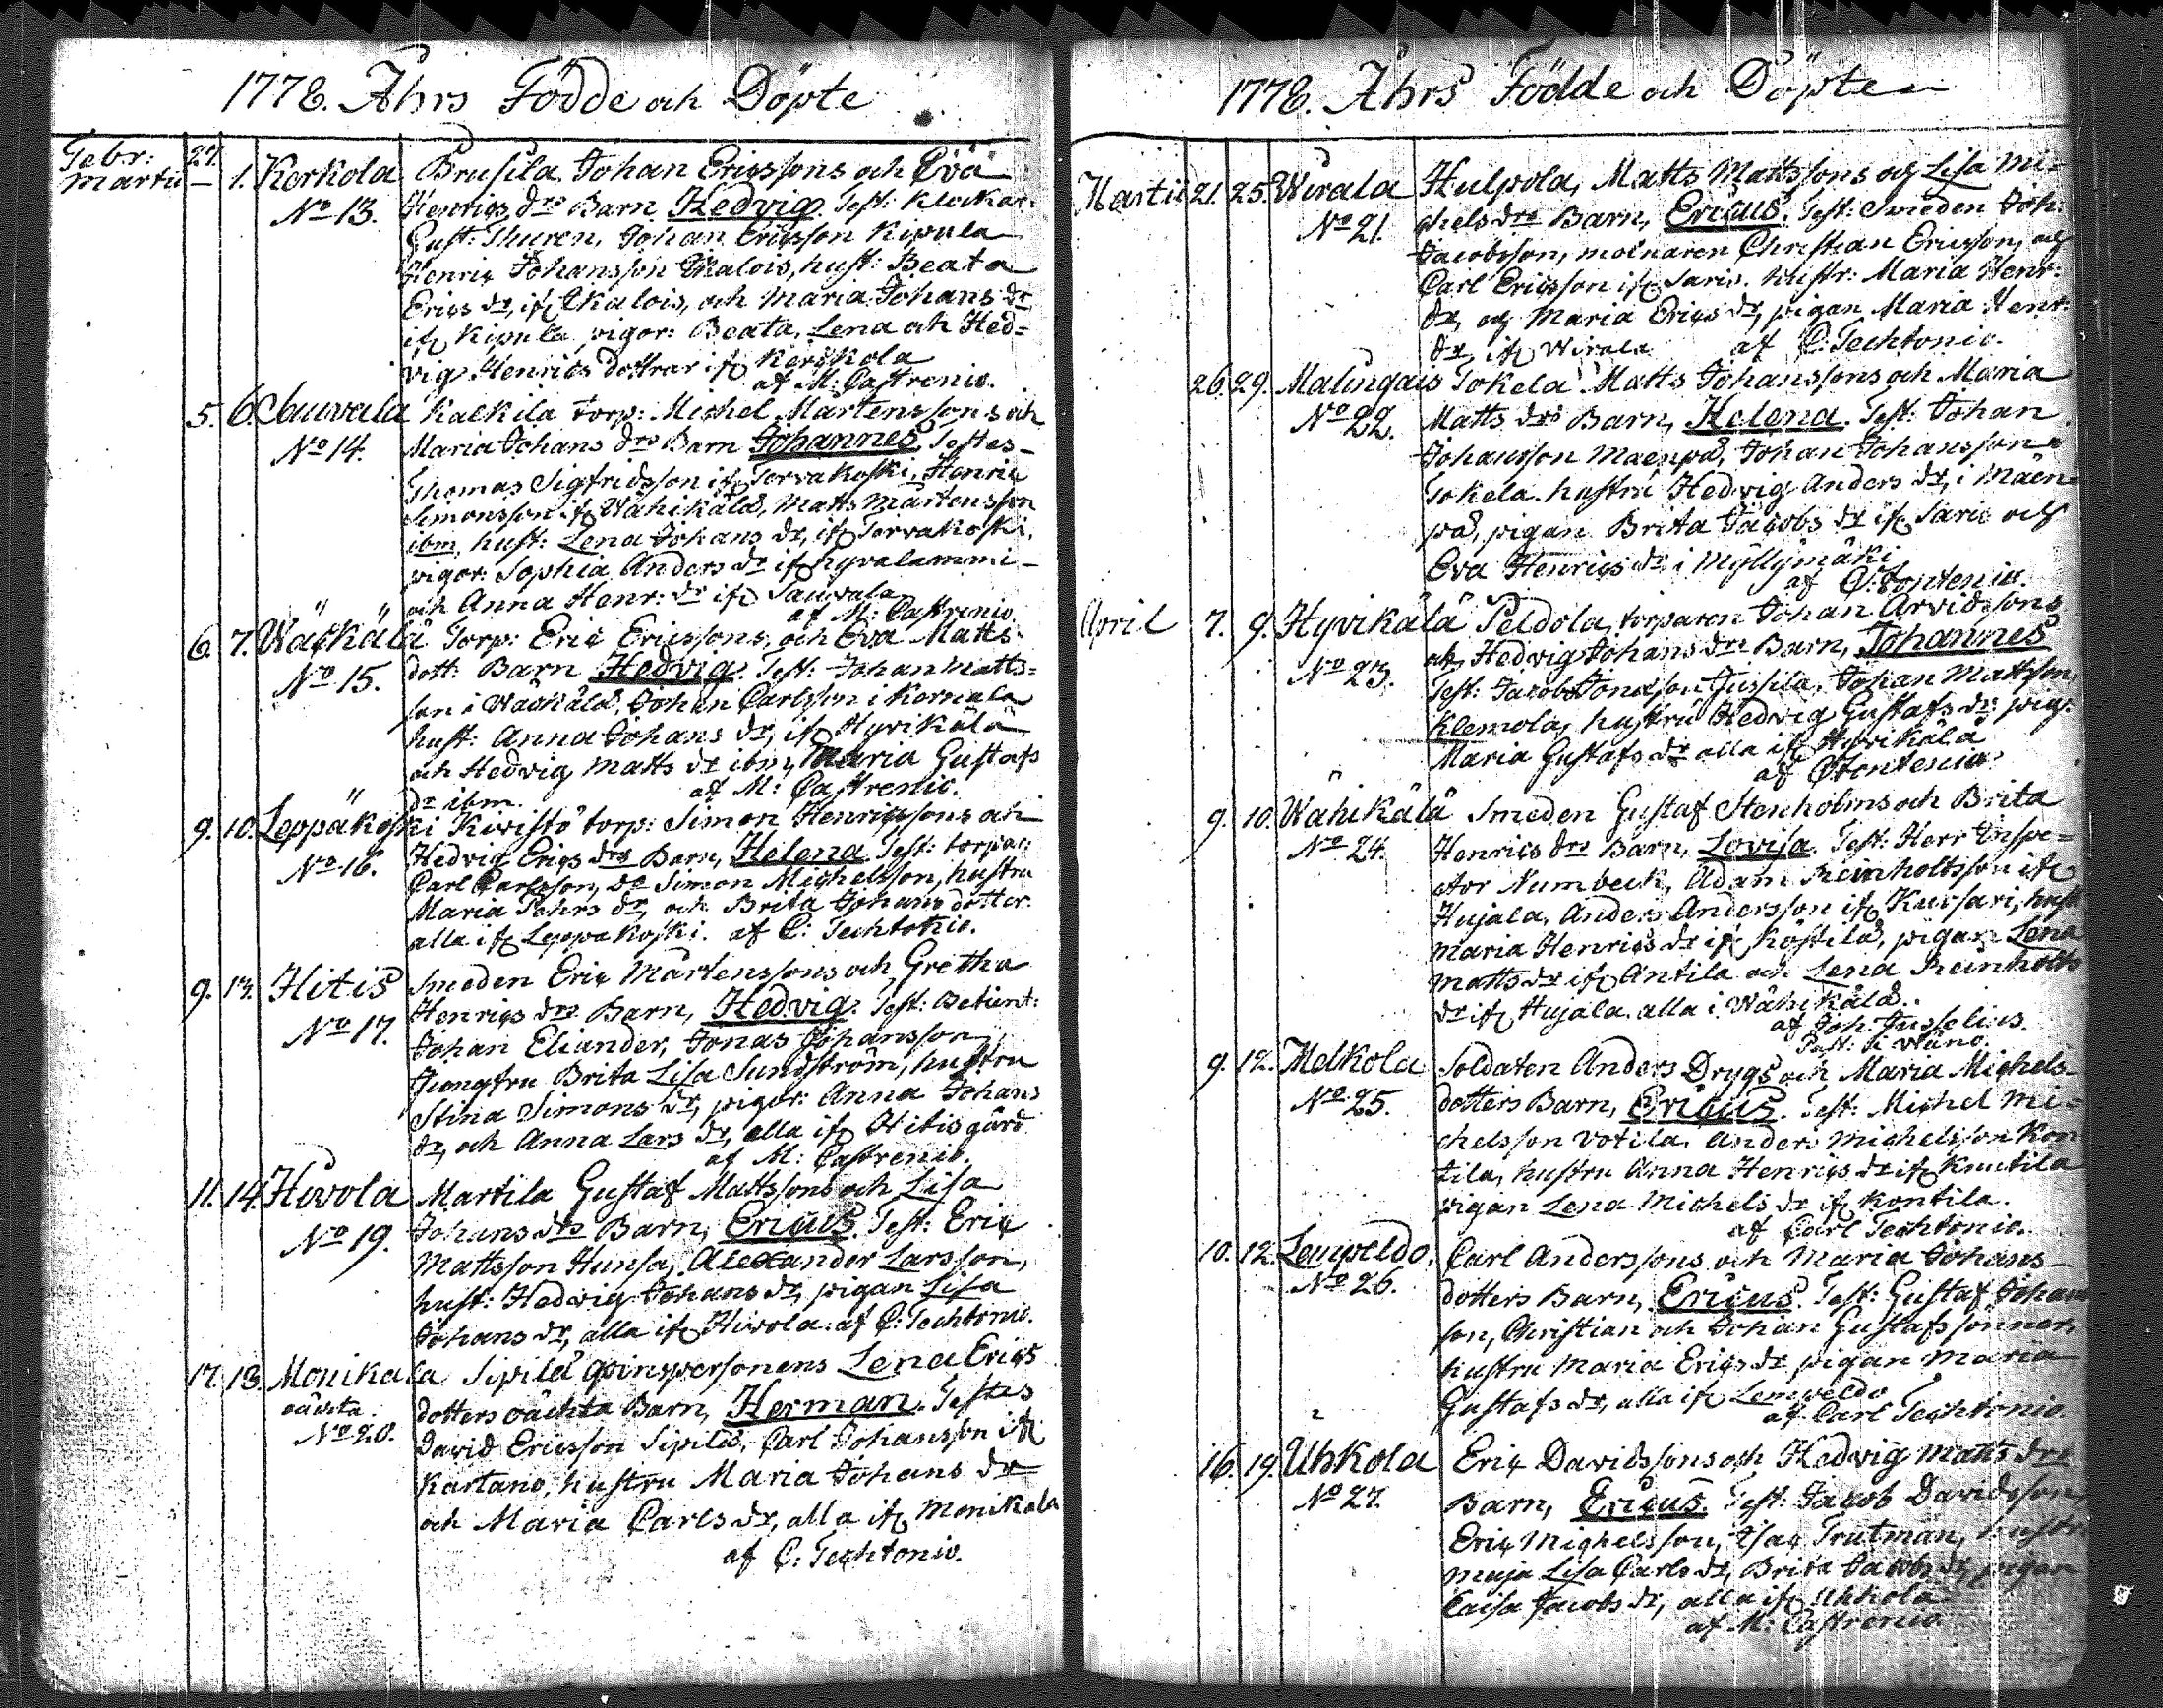 1778. Åhrs Födde och Döpte
Febr: 27.
Martii — 1. Kerkola Prusila Johan Ericssons och Eva
No 13. Henrics drs Barn Hedvig. Test: Klockar:
Gust: Thuren, Johan Ericsson Kipula
Henric Johansson Ekalois, hust: Beata
Erics dr, if Ekalois, och Maria Johans dr
if Kipula pigor: Beata, Lena och Hed=
vig Henrics dottrar if Kerkola
af M: Castrenio.
5. 6. Sauvala Kalkila torp: Michel Mårtenssons och
No 14. Maria Johans drs Barn Johannes. Testes
Thomas Sigfridsson if Torvakoski, Henric
Simonsson if Wåhikälä, Matts Mårtensson
ibm, hust: Lena Johans dr, if Torvakoski,
pigor: Sophia Anders dr if Hyvalammi
och Anna Henr: dr if Sauvala
af M: Castrenio.
6. 7. Wäskälä Torp: Eric Ericssons, och Eva Matts
No 15. dott: Barn Hedvig. Test: Johan Matts=
son i Wäskälä, Johan Carlsson i
hust: Anna Johans dr, if Hyvikälä
och Hedvig Matts dr ibm, Maria Gustafs
dr ibm. af M: Castrenio.
9. 10. Leppäkoski Kivistö torp: Simon Henricssons och
No 16. Hedvig Erics drs Barn, Helena. Test: torpar:
Carl Carlsson, do Simon Michelsson, hustru
Maria Pehrs dr, och Brita Johans dotter
alla if Leppäkoski. af C: Techtonio.
9. 13. Hitis Smeden Eric Mårtenssons och Gretha
No 17. Henrics drs Barn, Hedvig. Test: Betient:
Johan Eliander, Jonas Johansson
Jungfru Brita Lisa Sundström, hustru
Stina Simons dr, pigor: Anna Johans
dr, och Anna Lars dr, alla if Hitis gård
af M: Castrenio.
11. 14. Hivola Martila Gustaf Mattssons och Lisa
No 19. Johans drs Barn, Ericus. Test: Eric
Mattsson Hunsa, Alexander Larsson,
hust: Hedvig Johans dr, pigan Lisa
Johans dr, alla if Hivola. af C: Techtonio.
17. 18. Monikala Sipilä qvinspersonens Lena Erics
oäckta dotters oächta Barn, Herman. Testes
No 20. David Ericsson Sipilä, Carl Johansson if
Kartano, hustru Maria Johans dr
och Maria Carls dr, alla if Monikala
af C: Techtonio.
1778. Åhrs Födde och Döpte
Martii 21. 25. Wirala Hulpola, Matts Mattssons och Lisa Mi=
No 21. chels drs Barn, Ericus. Test: Smeden Joh:
Jacobsson, molnaren Christian Ericsson, och
Carl Ericsson if Saris. hustr: Maria Henr:
dr, och Maria Erics dr, pigan Maria Henr:
dr, if Wirala af C. Techtonio.
26. 29. Malingais Tokela Matts Johanssons och Maria
No 22. Matts drs Barn, Helena. Test: Johan
Johansson Maenpä, Johan Johansson
Tokela. hustru Hedvig Anders dr, i Mäen=
pä, pigan Brita Jacobs dr if Saris och
Eva Henrics dr, i Myllymäki
af C. Fontenio.
April 7. 9. Hyvikälä Peldola, torparen Johan Arvidssons
No 23. och Hedvig Johans drs Barn, Johannes
Test: Jacob Jonasson Jussila, Johan Mattsson,
Klemola, hustru Hedvig Gustafs dr pig:
Maria Gustafs dr alla if Hyvikälä
af Fontenio
9. 10. Wåhikälä Smeden Gustaf Stenholms och Brita
No 24. Henrics drs Barn, Lovisa. Test: Herr Inspe=
ctor Numbeck, Adam Reinholtsson if
Hujala, Anders Andersson if Kussari, hust
Maria Henrics dr if Köstilä, pigan Lena
Matts dr if Antila och Lena Reinholts
dr if Hujala. alla i Wåhikälä.
af Joh: Jusselius.
Past: i Wånå.
9. 12. Melkola Soldaten Anders Drygs och Maria Michels
No 25. dotters Barn, Ericus. Test: Michel Mi=
chelsson Votila. Anders Michelsson Kon
tila, hustru Anna Henrics dr if Knutila
pigan Lena Michels dr if Kontila.
af Carl Techtonio.
10. 12. Lempeldo. Carl Anderssons och Maria Johans
No 26. dotters Barn, Ericus. Test: Gustaf Johans
son, Christian och Johan Gustafs sönner,
hustru Maria Erics dr pigan Maria
Gustafs dr, alla if Lempeldo
af Carl Techtonio.
16. 19. Uhkola Eric Davidssons och Hedvig Matts drs
No 27. Barn, Ericus. Test: Jacob Davidsson,
Eric Michelsson, Isac Trutman, hustr:
Maja Lisa Carls dr, Brita Jacobs dr, pigan
Caisa Jacobs dr, alla if Uhkola
af M: Castrenio.